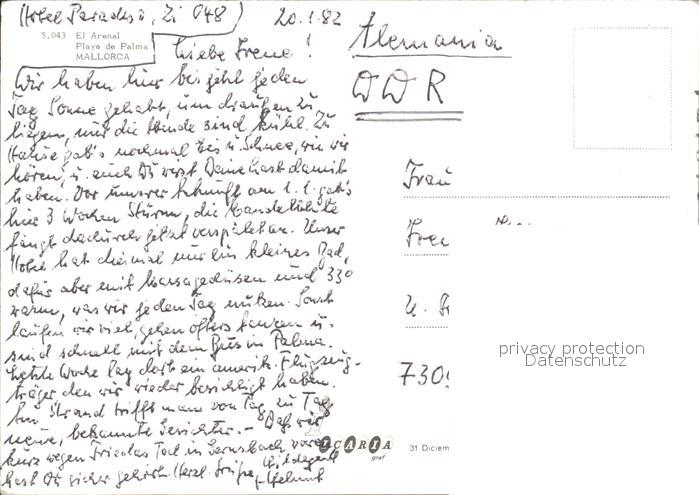 Hotel Paradiso, Zi 048)
20.1.82
5.043 El Arenal
Playa de Palma
MALLORCA
Liebe Irene!
Wir haben hier bis jetzt jeden
Tag Sonne gehabt, um draußen zu
liegen, nur die Winde sind kühl. Zu
Hause gab's nochmal Eis u. Schnee, wie wir
hören, u. auch Du wirst Deine Last damit
haben. Vor unserer Ankunft am 1.1. gab's
hier 3 Wochen Sturm, die Mandelblüte
fängt dadurch jetzt verspätet an. Unser
Hotel hat diesmal nur ein kleines Bad,
dafür aber mit Massagedüsen und 33°
warm, was wir jeden Tag nutzen. Sonst
laufen wir viel, gehen öfters tanzen u.
sind schnell mit dem Bus in Palma.
Letzte Woche lag dort ein amerik. Flugzeug-
träger, den wir wieder besichtigt haben.
Am Strand trifft man von Tag zu Tag
neue, bekannte Gesichter. - Daß wir
kurz wegen Friedas Tod in Gernsbach waren
hast Du sicher gehört. Herzl. Grüße Hildegard
Helmut
Alemania
DDR
Frau
Iren
730
ICARIA
graf
31 Diciem
privacy protection
Datenschutz